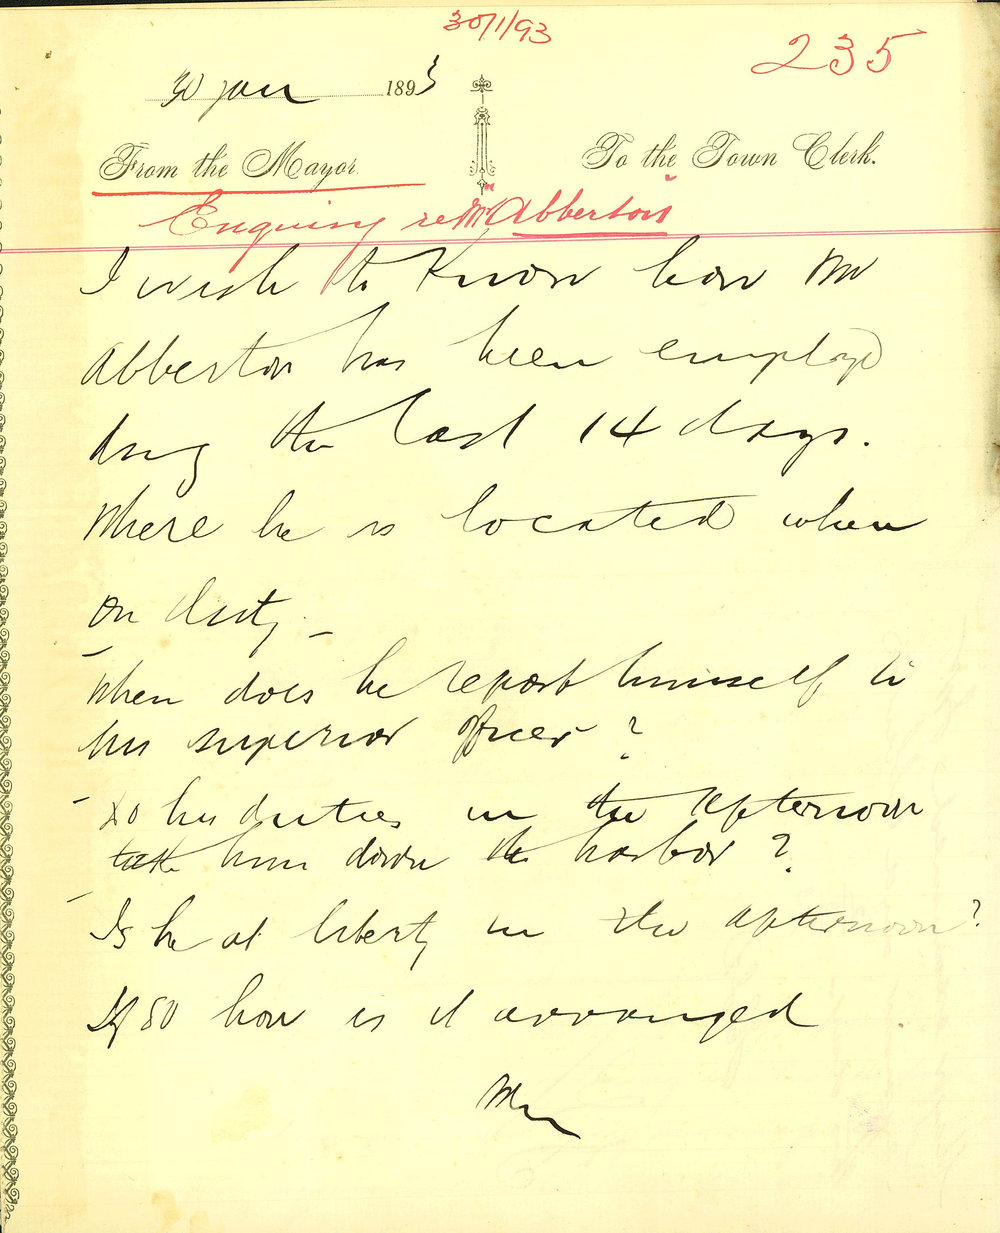 30/1/93
235
30 Jan 1893
From the Mayor. To the Town Clerk.
Enquiry re Mr Abberton
I wish to know how Mr
Abberton has been employd
durg the last 14 days.
Where he is located when
on duty. –
– When does he report himself to
his superior officer ?
– Do his duties in the afternoon
take him down the harbor ?
– Is he at liberty in the afternoon ?
If so how is it arranged